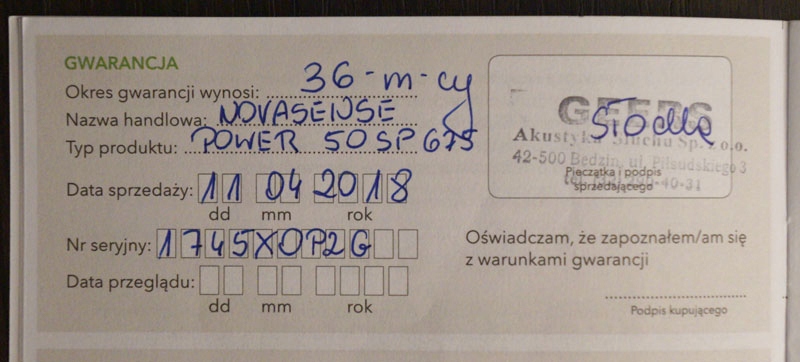 GWARANCJA
Okres gwarancji wynosi: 36-m-cy
Nazwa handlowa: NOVASENSE
Typ produktu: POWER 50 SP 675
Data sprzedaży: 11 04 2018
dd mm rok
Nr seryjny: 1745X0P2G
Data przeglądu:
dd mm rok
GEERS
Akustyka Słuchu Sp. z o.o.
42-500 Będzin, ul. Piłsudskiego 3
Pieczątka i podpis
sprzedającego
Oświadczam, że zapoznałem/am się
z warunkami gwarancji
Podpis kupującego